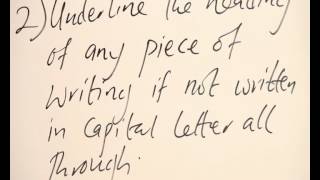 2) Underline the heading
of any piece of
writing if not written
in Capital letter all
through.